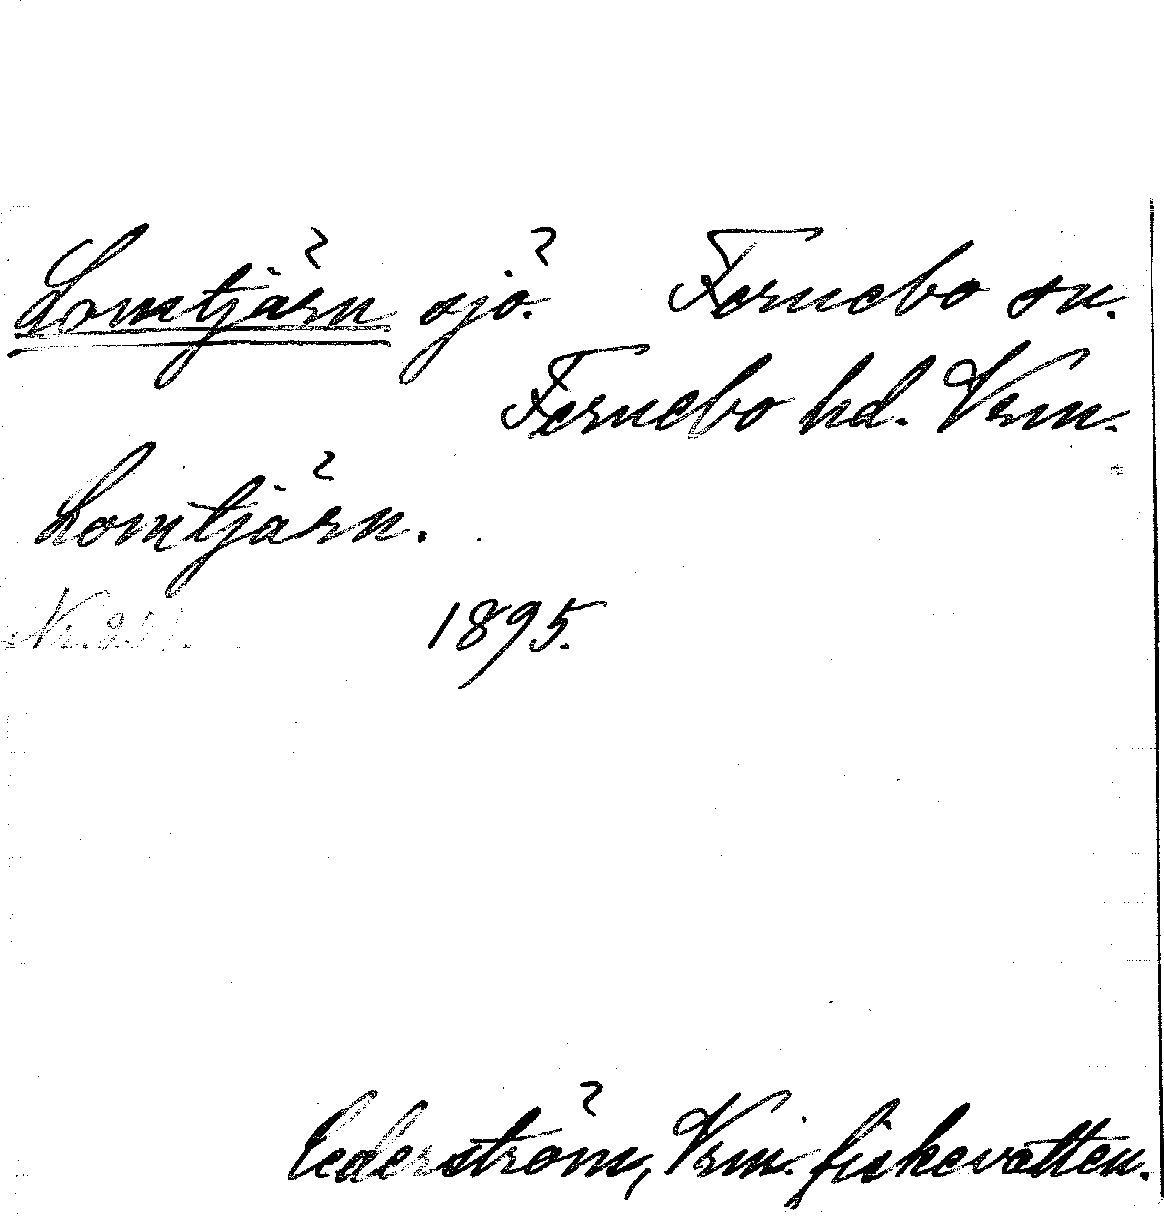 Lomtjärn sjö. Fernebo sn.
Fernebo hd. Vrm.
Lomtjärn.
Nr. 1895.
Cederström, Vrm. fiskevatten.